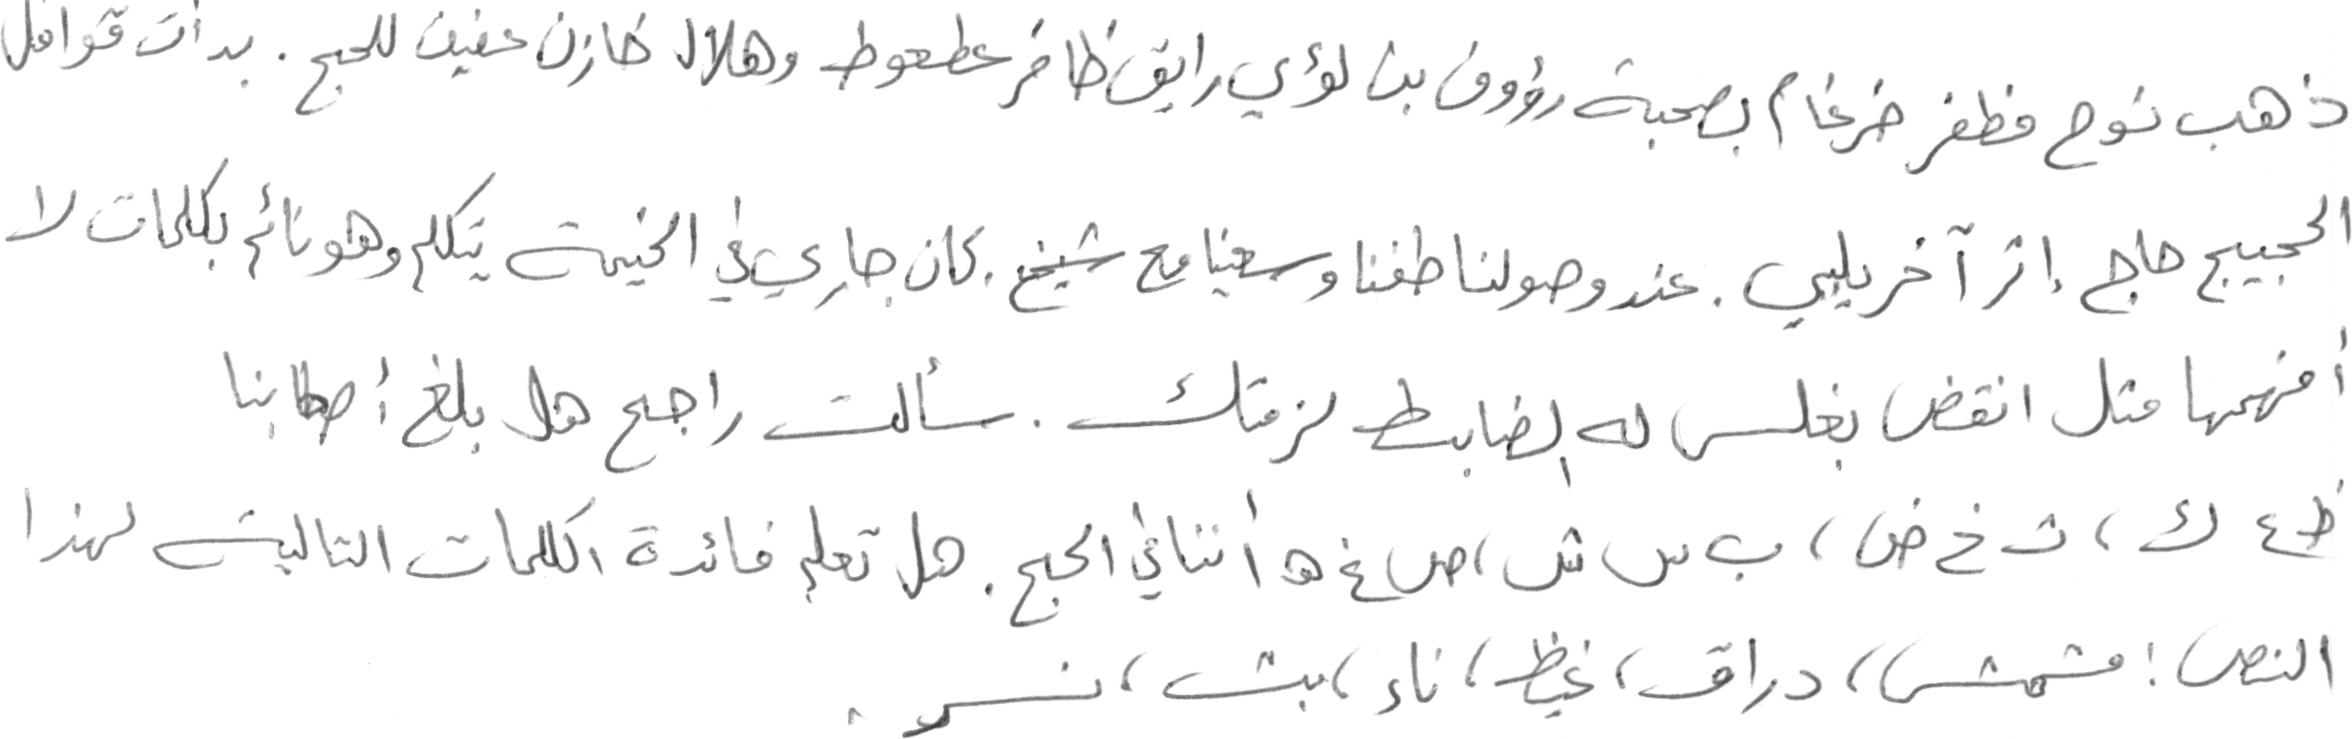 ذهب نوح مظفر ضرغام بصحبة رؤوف بن لؤي رايق ظافر عطعوط وهلال خازن عفيف للحج. بدأت قوافل
الحجيج حاج إثر آخر يلبي. عند وصولنا طفنا وسعينا مع شيخ. كان جاري في الخيمة يتكلم وهو نائم بكلمات لا
أفهمها مثل انقض بغلس له الضابط لزمتك. سألت راجح هل بلغ أصطابنا
ظ ع ك، ث خ ض، ب س ش، ص غ ه أننا في الحج. هل تعلم فائدة الكلمات التالية لهذا
النص: مشمش، دراق، غيظ، ناء، بث، نسر.